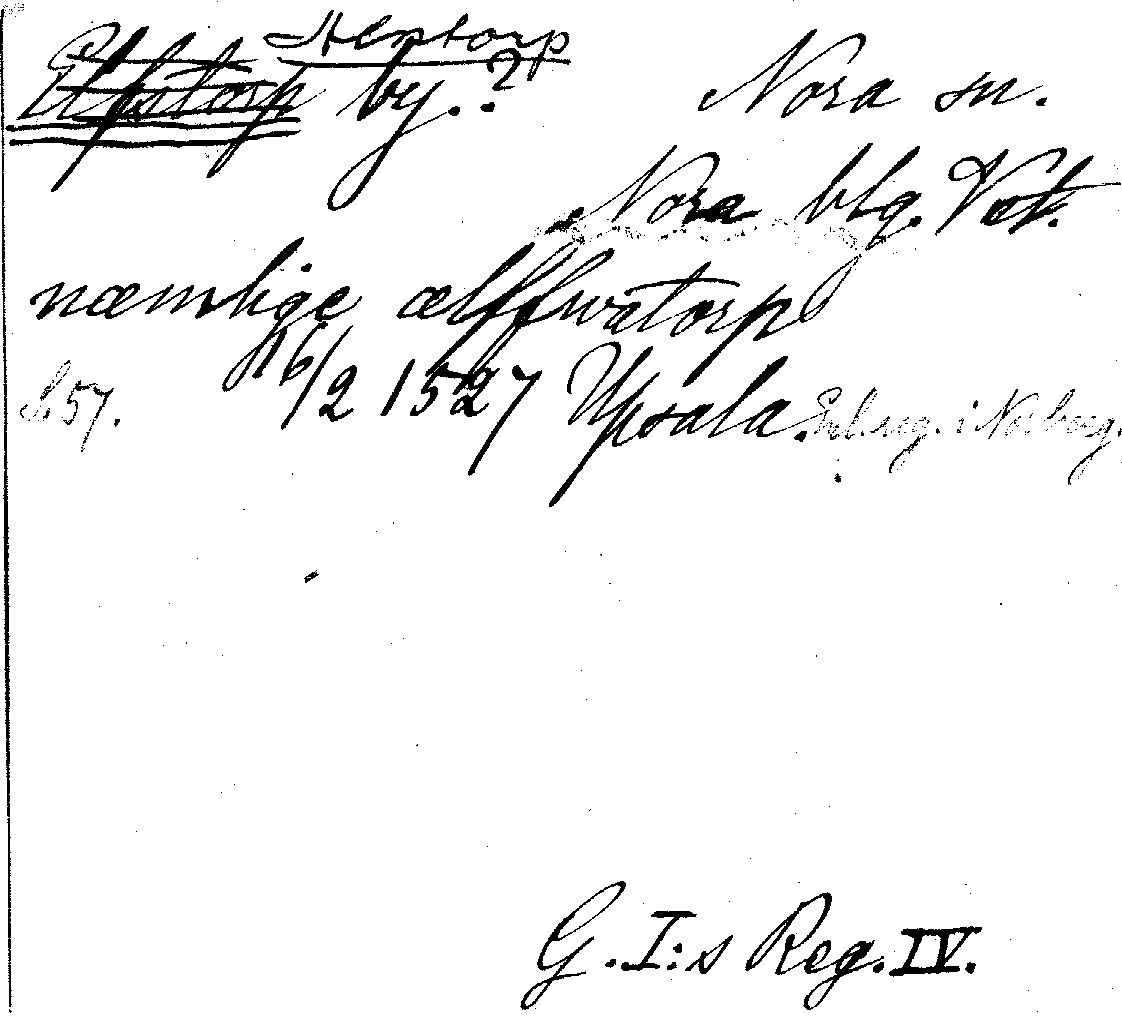 Alptorp
Elfstorp by.?
Nora sn.
Nora blg. Vstm.
næmlige ælffwatorp
S. 57. 16/2 1527 Upsala. Enl. reg. i Norberg.
G. I:s Reg. IV.